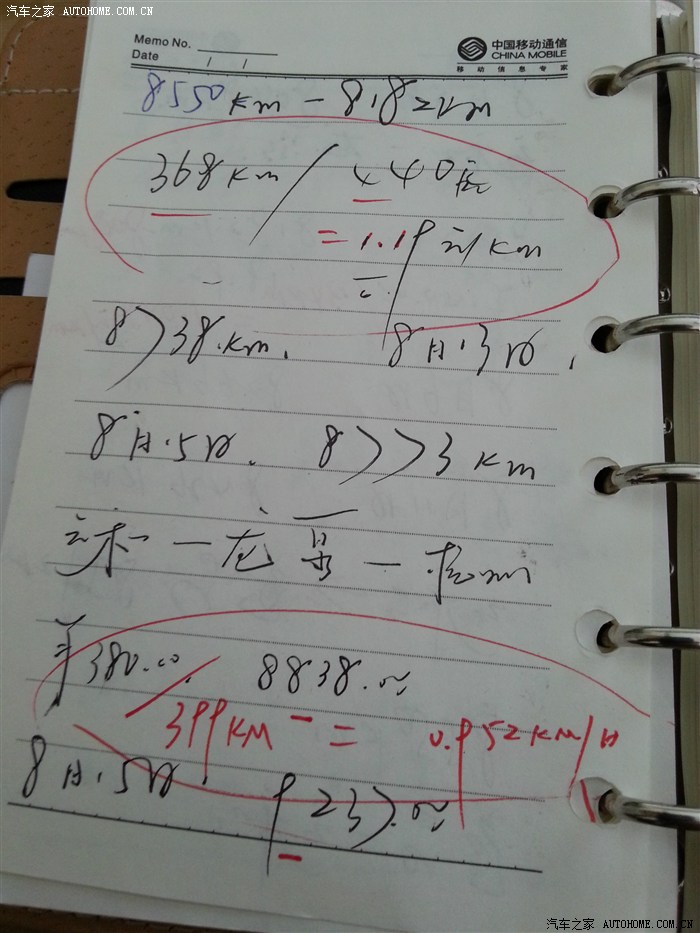 汽车之家 AUTOHOME.COM.CN
Memo No.
Date / /
中国移动通信
CHINA MOBILE
移动信息专家
8550km - 8182km
368km / 440元
= 1.19元/km
8738.km. 8月.3日.
8月.5日. 8773km
380.00. 8838.00
399KM = 0.952KM/
8月.5日. 9237.00
汽车之家 AUTOHOME.COM.CN